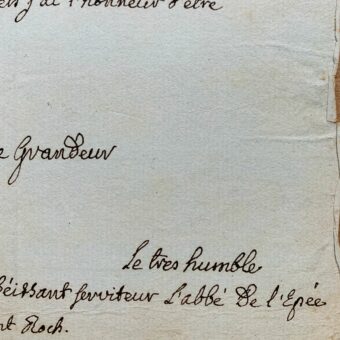 j'ai l'honneur d'être
Grandeur
Le tres humble
béissant serviteur L'abbé De l'Epée
nt Roch.